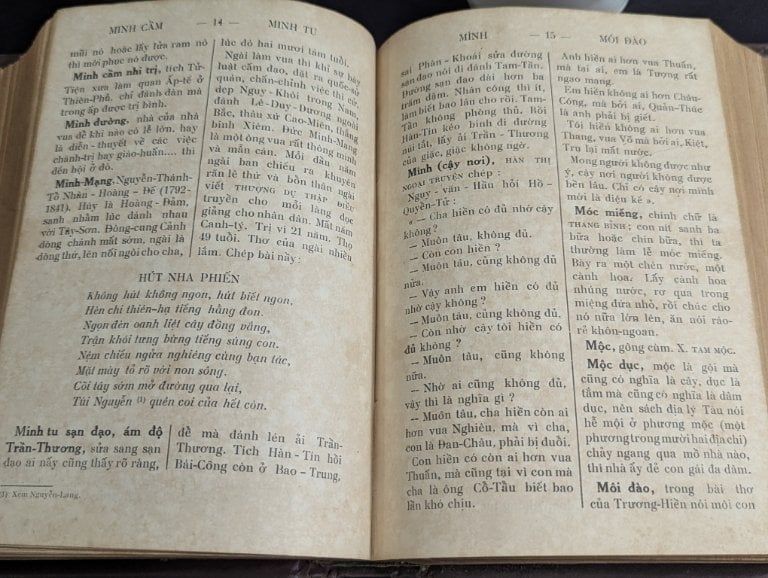 MINH CẦM — 14 — MINH TU
mũi nó hoặc lấy lửa ram nó
thì mới phục nó được.
Minh cầm nhi trị, tích Tử-
Tiện xưa làm quan Ấp-tể ở
Thiên-Phủ, chỉ đánh đàn mà
trong ấp được trị bình.
Minh đường, nhà của nhà
vua để khi nào có lễ lớn, hay
là diễn-thuyết về các việc
chánh-trị hay giáo-huấn.... thì
đến hội ở đó.
Minh-Mạng. Nguyễn-Thánh-
Tổ Nhân-Hoàng-Đế (1792-
1841). Húy là Hoàng-Đảm,
sanh nhằm lúc đánh nhau
với Tây-Sơn. Đông-cung Cảnh
dòng chánh mất sớm, ngài là
dòng thứ, lên nối ngôi cho cha,
lúc đó hai mươi tám tuổi.
Ngài làm vua thì khi sự bày
luật cấm đạo, đặt ra quốc-sử
quán, chấn-chỉnh việc thi cử,
dẹp Nguỵ-Khôi trong Nam,
đánh Lê-Duy-Dương ngoài
Bắc, thâu xứ Cao-Miên, thắng
binh Xiêm. Đức Minh-Mạng
là một ông vua rất thông minh
và mẫn cán. Mỗi đầu năm
ngài ban chiếu ra khuyên
răn lê thứ và bổn thân ngài
viết THƯỢNG DỤ THẬP ĐIỀU
truyền cho mỗi làng đọc
giảng cho nhân dân. Mất năm
Canh-tý. Trị vì 21 năm. Thọ
49 tuổi. Thơ của ngài nhiều
lắm. Chép bài này:
HÚT NHA PHIẾN
Không hút không ngon, hút biết ngon,
Hèn chi thiên-hạ tiếng hằng đon.
Ngọn đèn oanh liệt cây đồng vắng,
Trận khói tưng bừng tiếng súng con.
Nệm chiếu ngửa nghiêng cùng bạn tác,
Mặt mày tỏ rõ với non sông.
Cõi tây sớm mở đường qua lại,
Túi Nguyễn (1) quên coi của hết còn.
Minh tu sạn đạo, ám độ
Trần-Thương, sửa sang sạn
đạo ai nấy cũng thấy rõ ràng,
để mà đánh lén ải Trần-
Thương. Tích Hàn-Tín hồi
Bái-Công còn ở Bao-Trung,
(1) Xem Nguyễn-Lang.
MÌNH — 15 — MÔI ĐÀO
sai Phàn-Khoái sửa đường
sạn đạo nói đi đánh Tam-Tần.
Đường sạn đạo dài hơn ba
trăm dặm. Nhân công thì ít,
làm biết bao lâu cho rồi. Tam-
Tần không phòng thủ, hồi
Hàn-Tín kéo binh đi đường
núi tắt, lấy ải Trần-Thương
của giặc, giặc không ngờ.
Mình (cậy nơi), HÀN THI
NGOẠI TRUYỆN chép:
Ngụy-văn-Hầu hỏi Hồ-
Quyển-Tử:
« — Cha hiền có đủ nhờ cậy
không?
— Muôn tâu, không đủ.
— Còn con hiền?
— Muôn tâu, cũng không đủ
nữa.
— Vậy anh em hiền có đủ
nhờ cậy không?
— Muôn tâu, cũng không đủ.
— Còn nhờ cậy tôi hiền có
đủ không?
— Muôn tâu, cũng không
nữa.
— Nhờ ai cũng không đủ,
vậy thì là nghĩa gì?
— Muôn tâu, cha hiền còn ai
hơn vua Nghiêu, mà vì cha,
con là Đan-Châu, phải bị đuổi.
Con hiền có còn ai hơn vua
Thuấn, mà cũng tại vì con mà
cha là ông Cổ-Tẩu biết bao
lần khó chịu.
Anh hiền ai hơn vua Thuấn,
mà tại ai, em là Tượng rất
ngạo mạng.
Em hiền không ai hơn Châu-
Công, mà bởi ai, Quản-Thúc
là anh phải bị giết.
Tôi hiền không ai hơn vua
Thang, vua Võ mà bởi ai, Kiệt,
Trụ lại mất nước.
Mong người không được như
ý, cậy nơi người không được
bền lâu. Chỉ có cậy nơi mình
mới là diệu kế ».
Móc miếng, chính chữ là
THANG BÍNH; con nít sanh ba
bữa hoặc chín bữa, thì ta
thường làm lễ móc miếng.
Bày ra một chén nước, một
cành hoa. Lấy cành hoa
nhúng nước, rơ qua trong
miệng đứa nhỏ, rồi chúc cho
nó nữa lớn lên, ăn nói ráo-
rẻ khôn-ngoan.
Mộc, gông cùm. X. TAM MỘC.
Mộc dục, mộc là gội mà
cũng có nghĩa là cây, dục là
tắm mà cũng có nghĩa là dâm
dục, nên sách địa lý Tàu nói
hễ mội ở phương mộc (một
phương trong mười hai địa chi)
chảy ngang qua mồ nhà nào,
thì nhà ấy đẻ con gái đa dâm.
Môi đào, trong bài thơ
của Trương-Hiền nói môi con